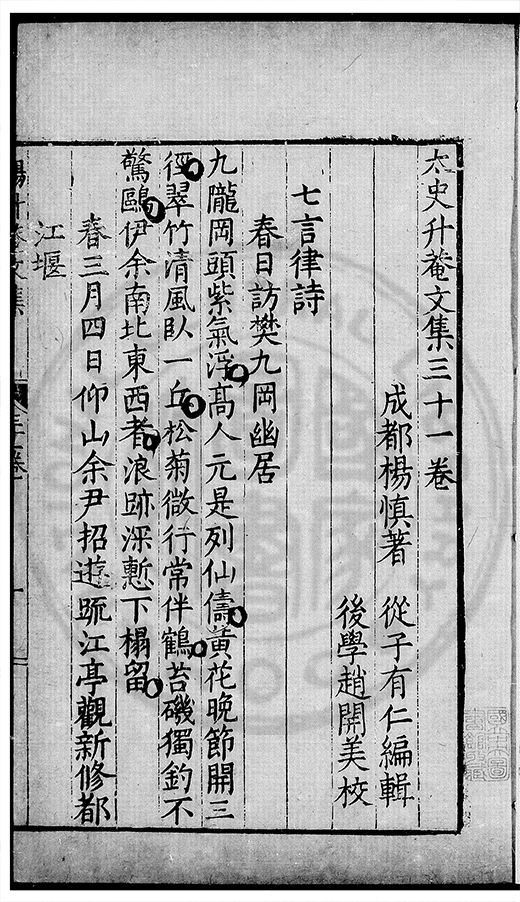 太史升菴文集三十一卷
成都楊慎著 從子有仁編輯
後學趙開美校
七言律詩
春日訪樊九岡幽居
九隴岡頭紫氣浮高人元是列仙儔黃花晚節開三
徑翠竹清風臥一丘松菊微行常伴鶴苔磯獨釣不
驚鷗伊余南北東西者浪跡深慙下榻留
春三月四日仰山余尹招遊疏江亭觀新修都
江堰